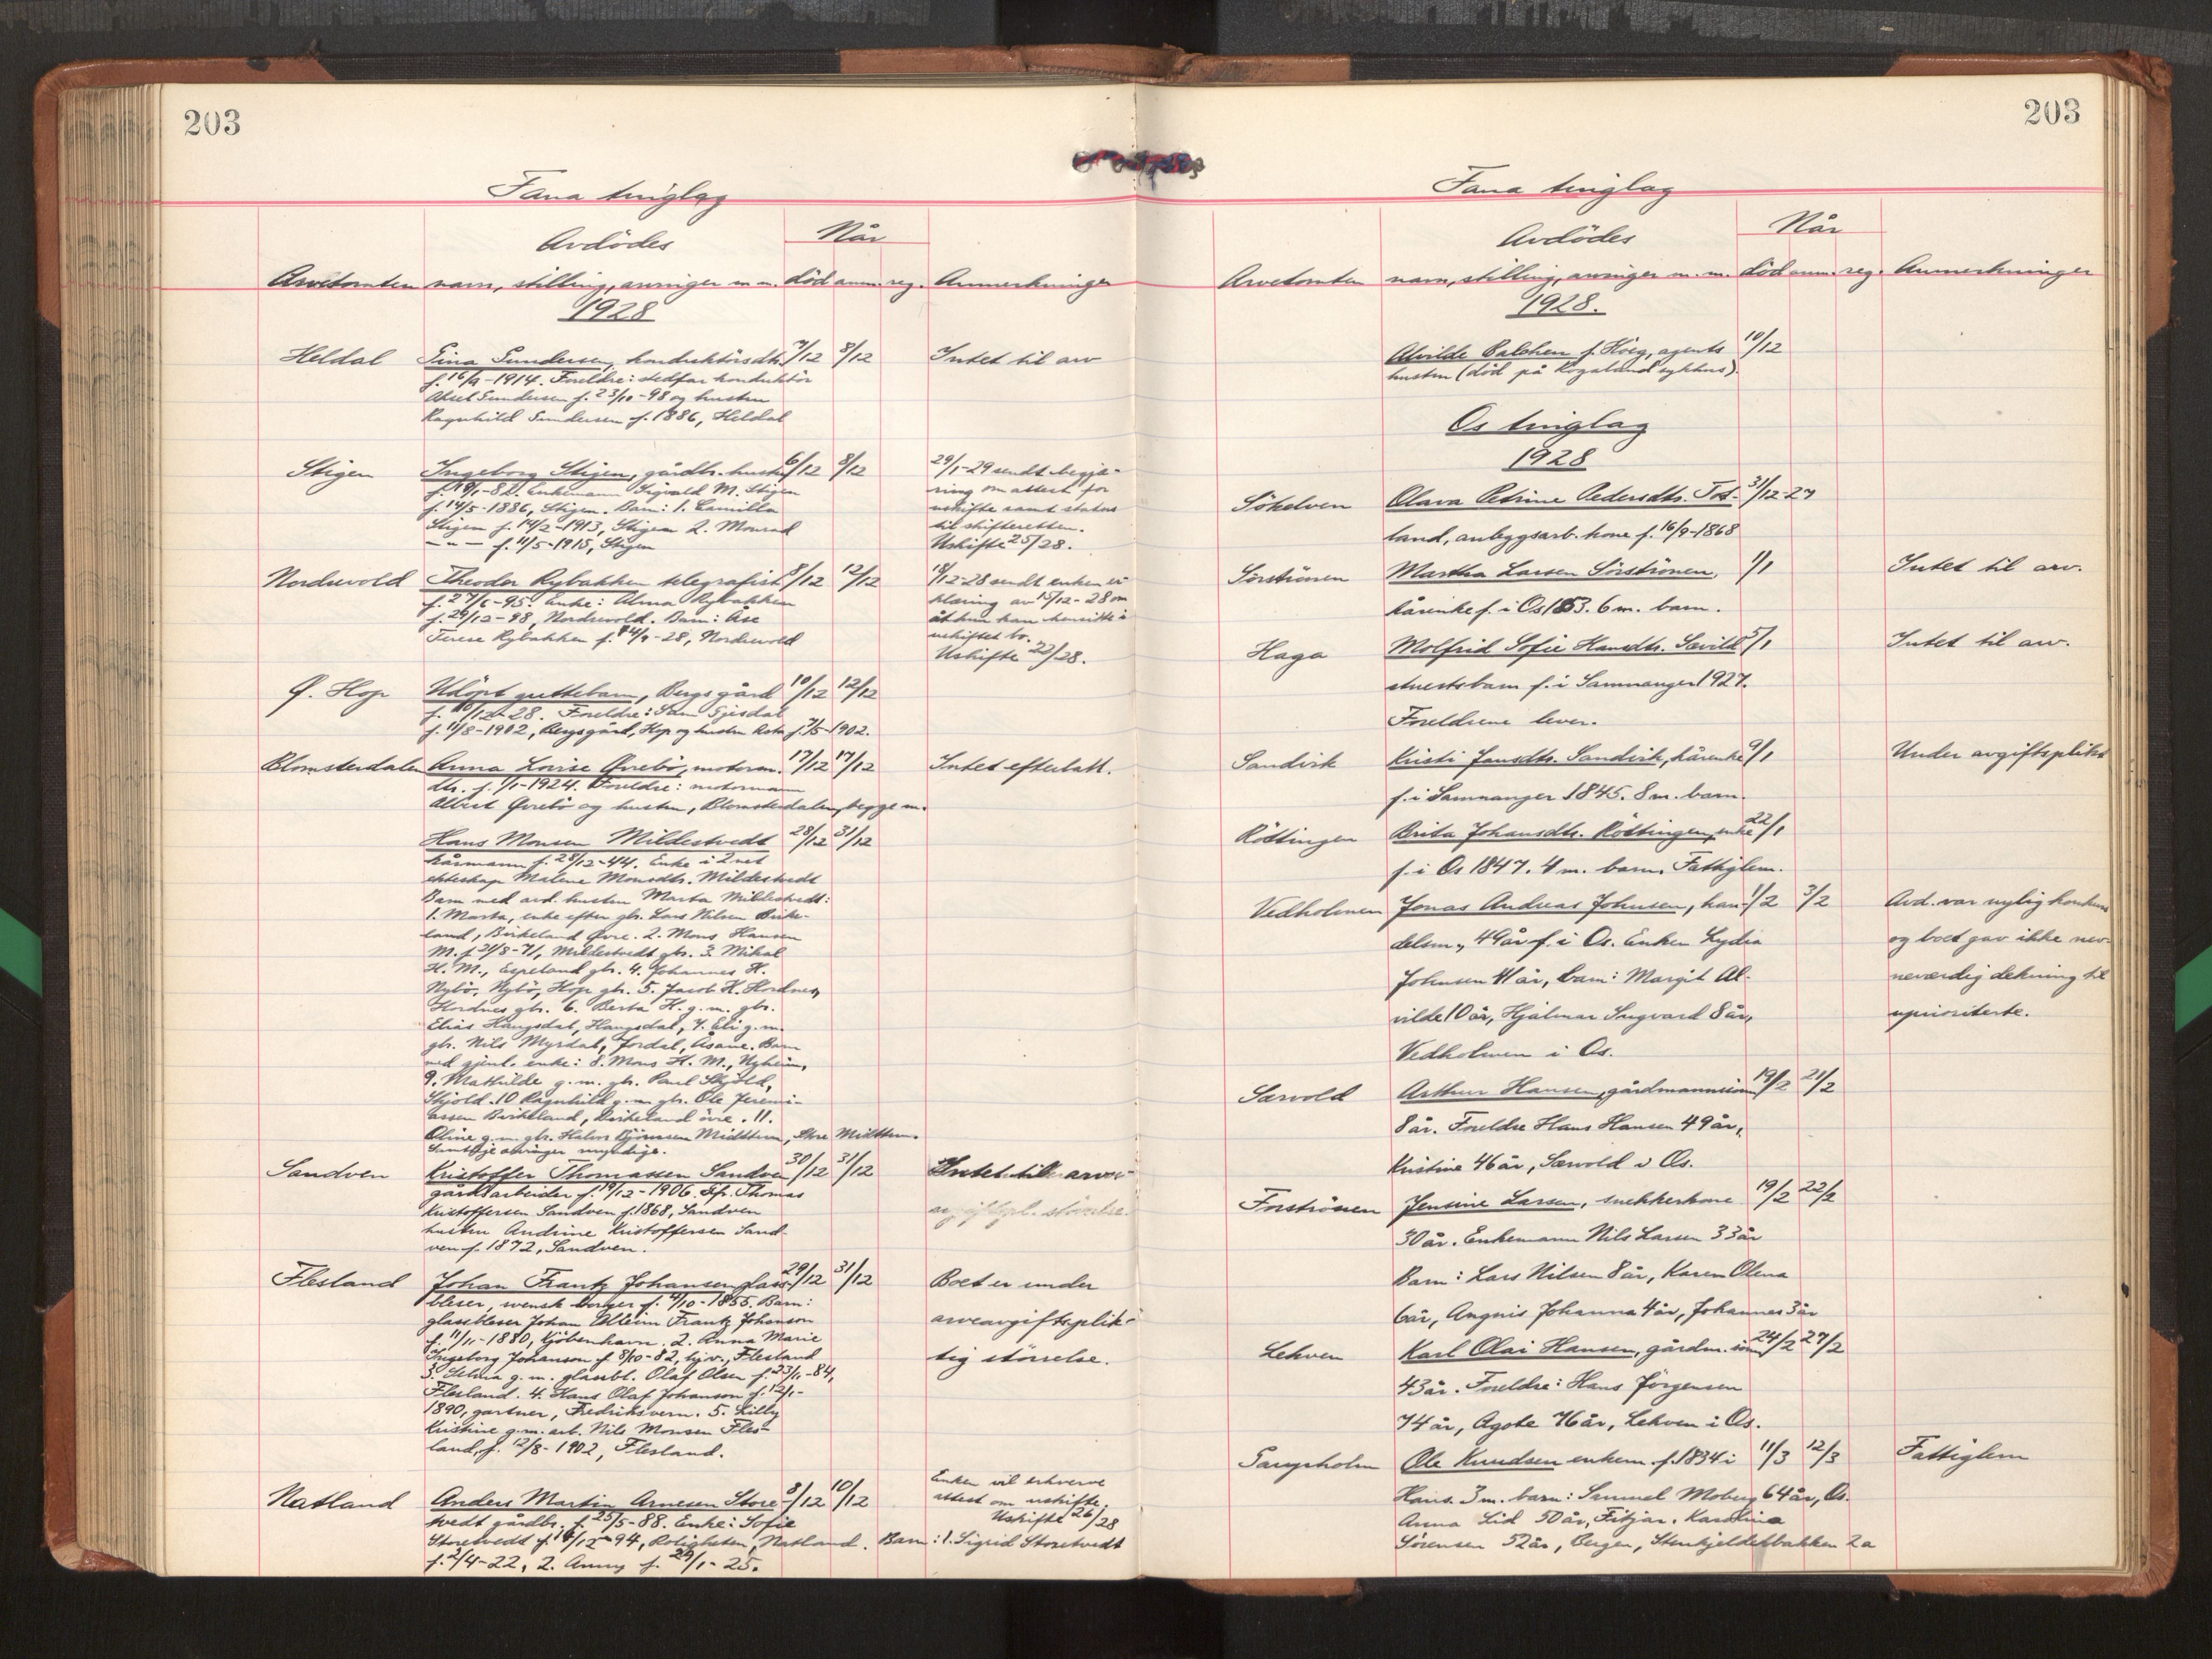 203
Fana tinglag
Avdödes
Når
Arvetomten navn, stilling, arvinger m.m. död anm. reg. Anmerkninger
1928
Heldal Gundersen, konduktörsdtr. 7/12 8/12 Intet til arv
f. 16/9-1914. Foreldre: stedfar konduktör
Aksel Gundersen f. 23/10-98 og hustru
Ragnhild Gundersen f. 1886, Heldal
Stigen Ingeborg Stigen, gårdbr. hustru 6/12 8/12 29/1-29 sendt begjæ-
f. 18/1-82. Enkemann Sigvald M. Stigen ring om attest for
f. 14/5-1886, Stigen. Barn: 1. Camilla uskifte samt status
Stigen f. 14/2-1913, Stigen 2. Monrad til skifteretten.
— " — f. 11/5-1915, Stigen Uskifte 25/28.
Nordrevold Theodor Rybakken telegrafist 8/12 12/12 18/12-28 sendt enken er-
f. 27/6-95. Enke: Alma Rybakken klæring av 15/12-28 om
f. 29/12-98, Nordrevold. Barn: Åse at hun kan hensitte i
Terese Rybakken f. 24/9-28, Nordrevold uskiftet bo.
Uskifte 22/28.
Ø. Hop Udöpt guttebarn, Bergs gård 10/12 12/12
f. 10/12-28. Foreldre: Sam Gjesdal
f. 11/8-1902, Bergsgård, Hop og hustru f. 7/5-1902.
Blomsterdalen Anna Lovise Övrebö, motorm. 17/12 17/12 Intet efterlatt.
dtr. f. 1/1-1924. Foreldre: motormann
Albert Övrebö og hustru, Blomsterdalen, begge m.
Hans Monsen Mildestvedt 28/12 31/12
kårmann f. 28/12-44. Enke i 2net
ekteskap Malene Monsdtr. Mildestvedt
Barn med avd. hustru Marta Mildestvedt:
1. Marta, enke efter gbr. Lars Nilsen Birke-
land, Birkeland Övre. 2. Mons Hansen
M. f. 20/8-71, Mildestvedt gbr. 3. Mikal
H. M., Espeland gbr. 4. Johannes H.
Nybö, Nybö, Hop gbr. 5. Jacob H. Hordnes,
Hordnes gbr. 6. Berta H. g.m. gbr.
Elias Haugsdal, Haugsdal, 7. Eli g.m.
gbr. Nils Myrdal, Jordal, Åsane. Barn
med gjenl. enke: 8. Mons H. M., Nyheim,
9. Mathilde g.m. gbr. Paul Skjold,
Skjold. 10 Ragnhild g.m. gbr. Ole Jeremi-
assen Birkeland, Birkeland övre. 11.
Oline g.m. gbr. Halvor Björnsen Midttun, Store Midttun.
Samtlige arvinger myndige.
Sandven Kristoffer Thomassen Sandven 30/12 31/12 Intet til arv
gårdsarbeider f. 19/12-1906. Thomas
Kristoffersen Sandven f. 1868, Sandven
hustru Andrine Kristoffersen Sand-
ven f. 1872, Sandven.
Flesland Johan Frantz Johansen glass- 29/12 31/12 Boet er under
bleser, svensk borger f. 4/10-1855. Barn: arveavgiftsplik-
glassbleser Johan Wilhelm Frantz Johanson tig störrelse.
f. 11/11-1880, Kjöbenhavn. 2. Anna Marie
Ingeborg Johanson f. 8/10-82, hjv., Flesland
3. Selma g.m. glassbl. Olaf Olsen f. 23/1-84,
Flesland. 4. Hans Olaf Johanson f. 12/1-
1890, gartner, Fredriksvern. 5. Lilly
Kristine g.m. arb. Nils Monsen Fles-
land, f. 12/8-1902, Flesland.
Natland Anders Martin Arnesen Store- 8/12 10/12 Enken vil erhverve
tvedt gårdbr. f. 25/5-88. Enke: Sofie attest om uskifte.
Uskifte 26/28
Storetvedt f. 14/12-94, Roligheten, Natland. Barn: 1. Sigrid Storetvedt
f. 2/4-22, 2. Anny f. 29/1-25.
203
Fana tinglag
Avdödes
Når
Arvetomten navn, stilling, arvinger m.m. död anm. reg. Anmerkninger
1928.
Alvilde Balchen f. Höeg, agents 10/12
hustru (död på Rogaland sykehus).
Os tinglag
1928
Sökelven Olava Petrine Pedersdtr. Tot- 31/12-27
land, anleggsarb. kone f. 16/9-1868
Sörströnen Martha Larsen Sörströnen, 1/1 Intet til arv.
kårenke f. i Os 1853. 6 m. barn.
Haga Molfrid Sofie Hansdtr. Sævild 5/1 Intet til arv.
f. i Samnanger 1927.
Foreldrene lever.
Sandvik Kristi Jansdtr. Sandvik, kårenke 9/1 Under avgiftsplikt
f. i Samnanger 1845. 8 m. barn.
Röttingen Brita Johansdtr. Röttingen, enke 22/1
f. i Os 1847. 4 m. barn. Fattiglem.
Vedholmen Jonas Andreas Johnsen, han- 1/2 3/2 Avd. var nylig konkurs
delsm., 49 år f. i Os. Enken Lydia og boet gav ikke nev-
Johnsen 41 år, barn: Margit Al- neverdig dekning til
vilde 10 år, Hjalmar Ingvard 8 år, uprioriterte.
Vedholmen i Os.
Sævold Arthur Hansen, gårdmannssönn 19/2 21/2
8 år. Foreldre Hans Hansen 49 år,
Kristine 46 år, Sævold i Os.
Forströnen Jensine Larsen, snekkerkone 19/2 22/2
30 år. Enkemann Nils Larsen 33 år
Barn: Lars Nilsen 8 år, Karen Olena
6 år, Angnis Johanna 4 år, Johannes 3 år
Lekven Karl Olai Hansen, gårdm. sönn 24/2 27/2
43 år. Foreldre: Hans Jörgensen
74 år, Agote 76 år, Lekven i Os.
Ole Knudsen enkem. f. 1834 i 11/3 12/3 Fattiglem
Haus. 3 m. barn: Samuel Moberg 64 år, Os.
Anna Lid 50 år, Fitjar. Karolina
Sörensen 52 år, Bergen, Stenkjellerbakken 2a